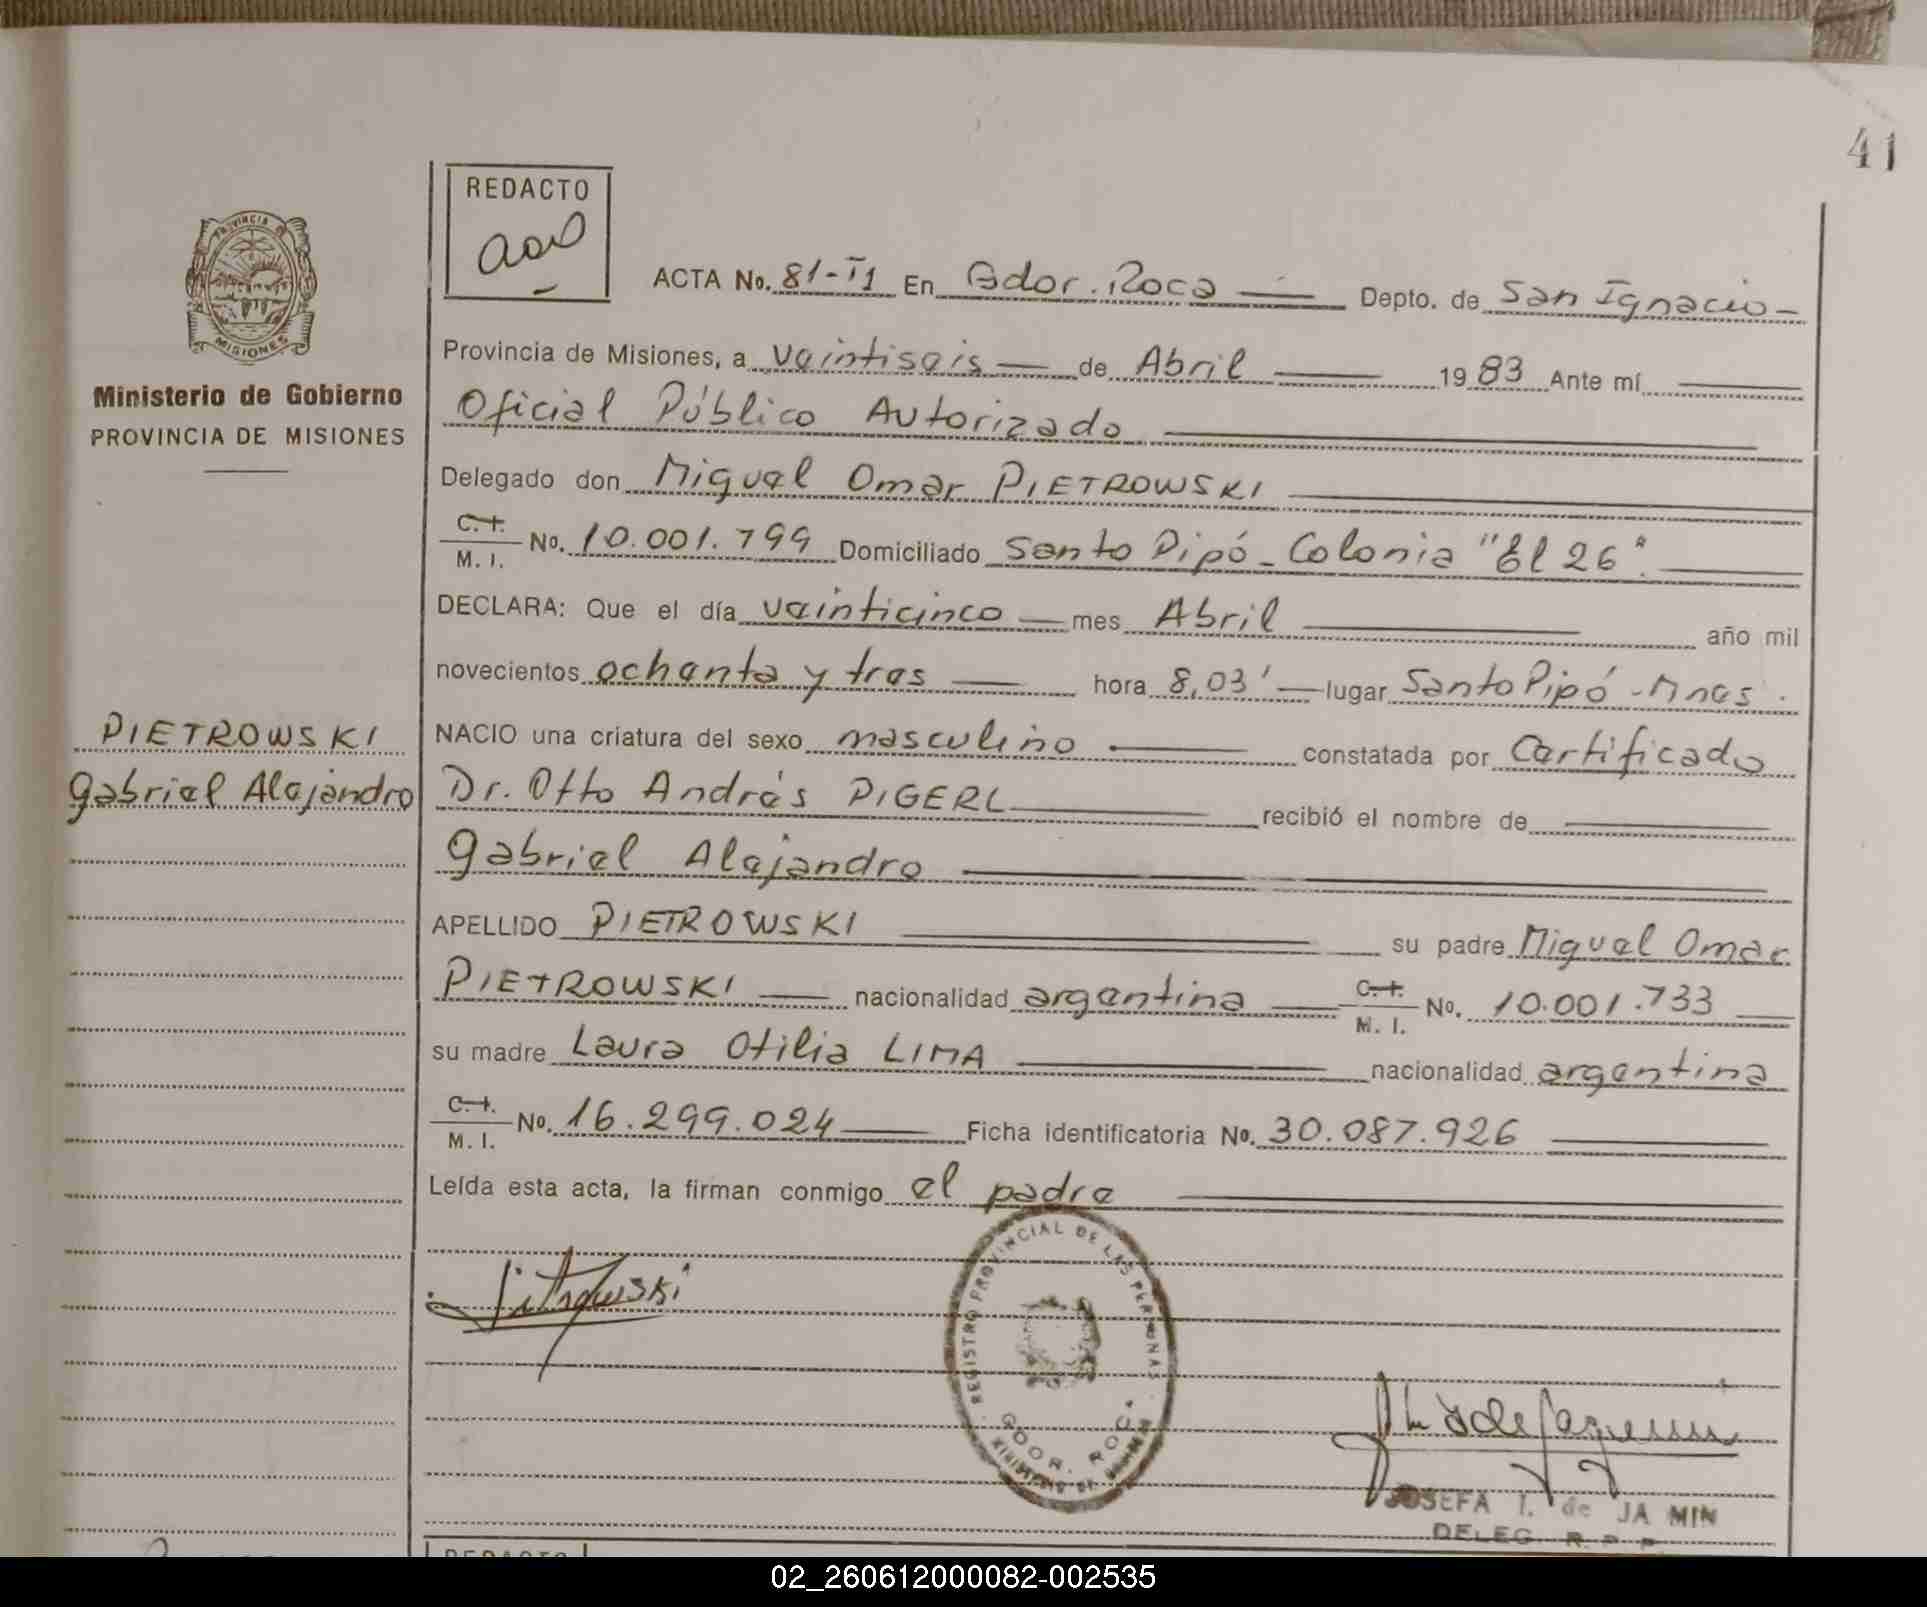 41
REDACTO
PROVINCIA
MISIONES
Ministerio de Gobierno
PROVINCIA DE MISIONES
ACTA No. 81-II En Gdor. Roca Depto. de San Ignacio
Provincia de Misiones, a veintiseis de Abril 1983 Ante mí
Oficial Público Autorizado
Delegado don Miguel Omar PIETROWSKI
C. I. M. I. No. 10.001.799 Domiciliado Santo Pipó - Colonia "El 26".
DECLARA: Que el día veinticinco mes Abril año mil
novecientos ochenta y tres hora 8,03' lugar Santo Pipó - Mnes.
PIETROWSKI
Gabriel Alejandro
NACIO una criatura del sexo masculino constatada por Certificado
Dr. Otto Andrés PIGERL recibió el nombre de
Gabriel Alejandro
APELLIDO PIETROWSKI su padre Miguel Omar
PIETROWSKI nacionalidad argentina C. I. M. I. No. 10.001.733
su madre Laura Otilia LIMA nacionalidad argentina
C. I. M. I. No. 16.299.024 Ficha identificatoria No. 30.087.926
Leída esta acta, la firman conmigo el padre
REGISTRO PROVINCIAL DE LAS PERSONAS
GDOR. ROCA
JOSEFA I. de JA MIN
DELEG. R. P. P.
REDACTO
02_260612000082-002535